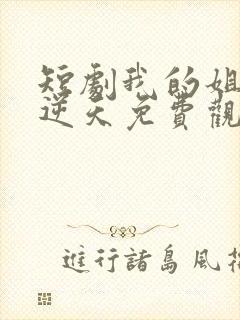 短劇我的姐
逆天免費觀
進行諸島風花